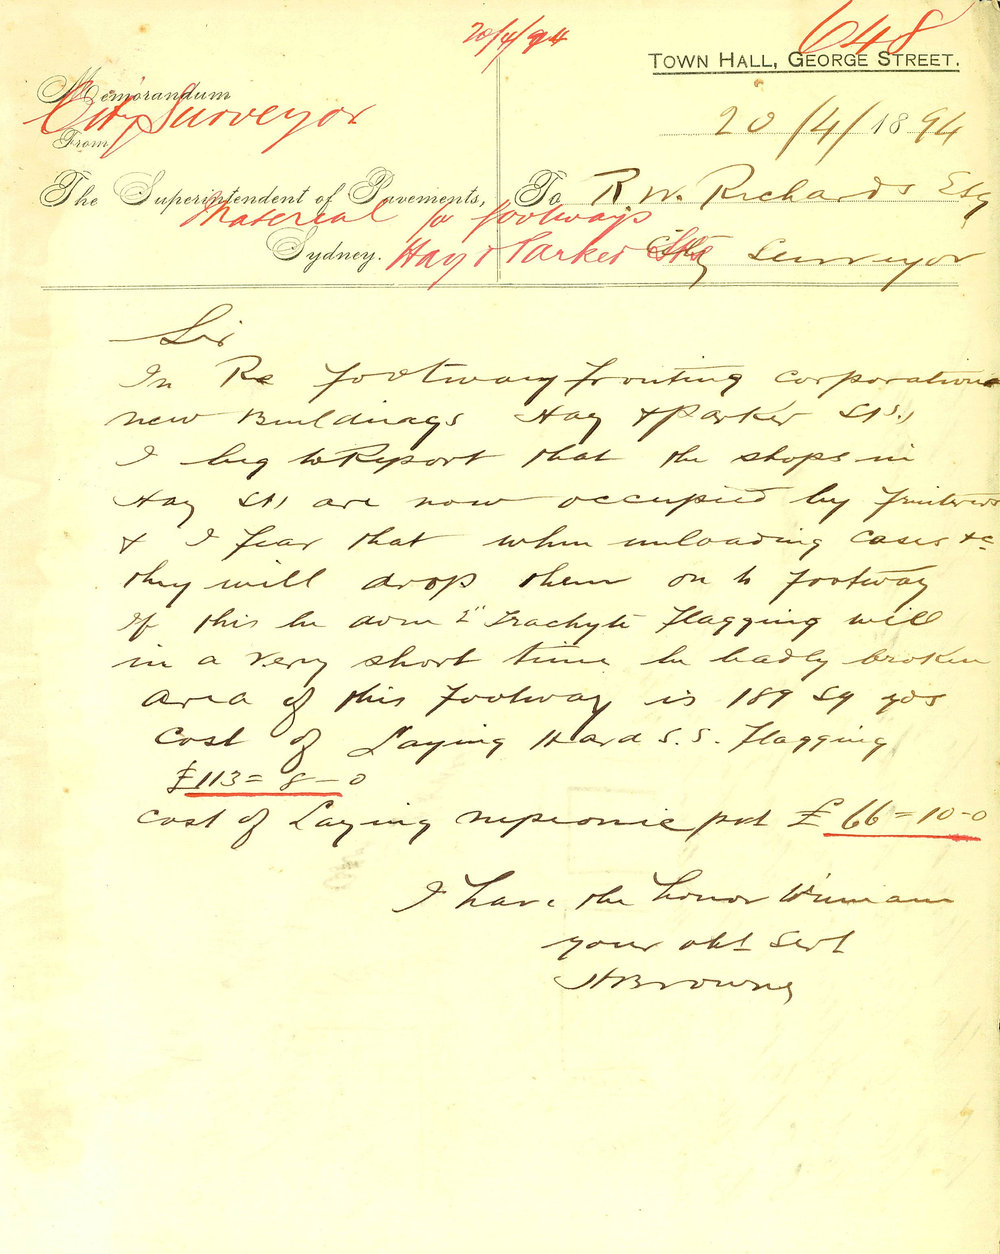 20/4/94
648
TOWN HALL, GEORGE STREET.
Memorandum
City Surveyor
From
20/4/1894
The Superintendent of Pavements,
To R. W. Richards Esq
Material for footways
Sydney.
Hay & Parker Sts
City Surveyor
Sir
In Re footway fronting corporations
new Buildings Hay & Parker Sts.,
I beg to Report that the shops in
Hay St, are now occupied by fruiterers
& I fear that when unloading cases &c
they will drop them on to footway
If this be done 2" Trachyte Flagging will
in a very short time be badly broken
Area of this footway is 189 Sq yds
Cost of Laying Hard S.S. Flagging
£113=8-0
Cost of Laying £66=10-0
I have the honor to remain
your obt Servt
Browne